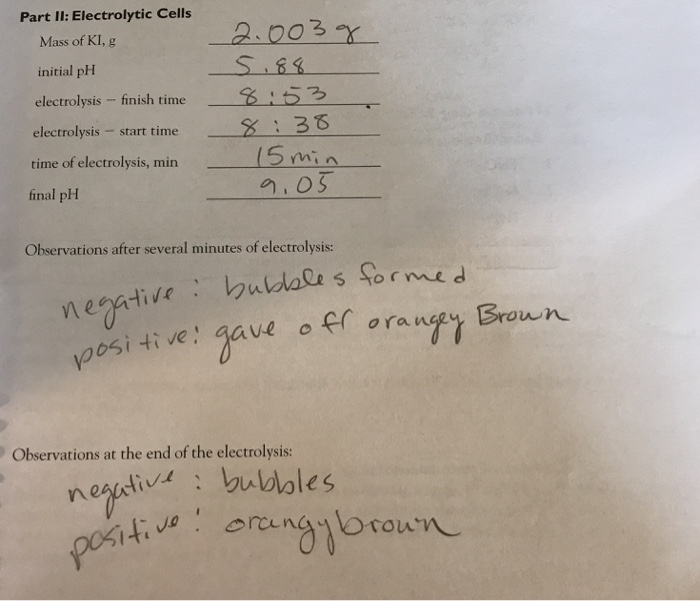 Part II: Electrolytic Cells
Mass of KI, g 2.003 g
initial pH 5.88
electrolysis – finish time 8:53
electrolysis – start time 8:38
time of electrolysis, min 15 min
final pH 9.05
Observations after several minutes of electrolysis:
negative: bubbles formed
positive: gave off orangey Brown
Observations at the end of the electrolysis:
negative: bubbles
positive: orangybrown